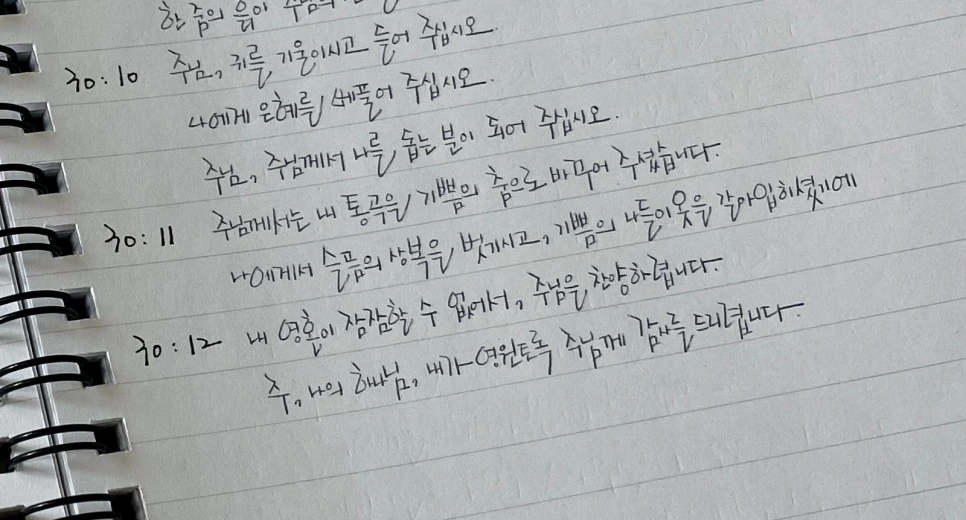 한 줌의 흙이 주님의
30:10 주님, 귀를 기울이시고 들어 주십시오.
나에게 은혜를 베풀어 주십시오.
주님, 주님께서 나를 돕는 분이 되어 주십시오.
30:11 주님께서는 내 통곡을 기쁨의 춤으로 바꾸어 주셨습니다.
나에게서 슬픔의 상복을 벗기시고, 기쁨의 나들이옷을 갈아입히셨기에
30:12 내 영혼이 잠잠할 수 없어서, 주님을 찬양하렵니다.
주, 나의 하나님, 내가 영원토록 주님께 감사를 드리렵니다.